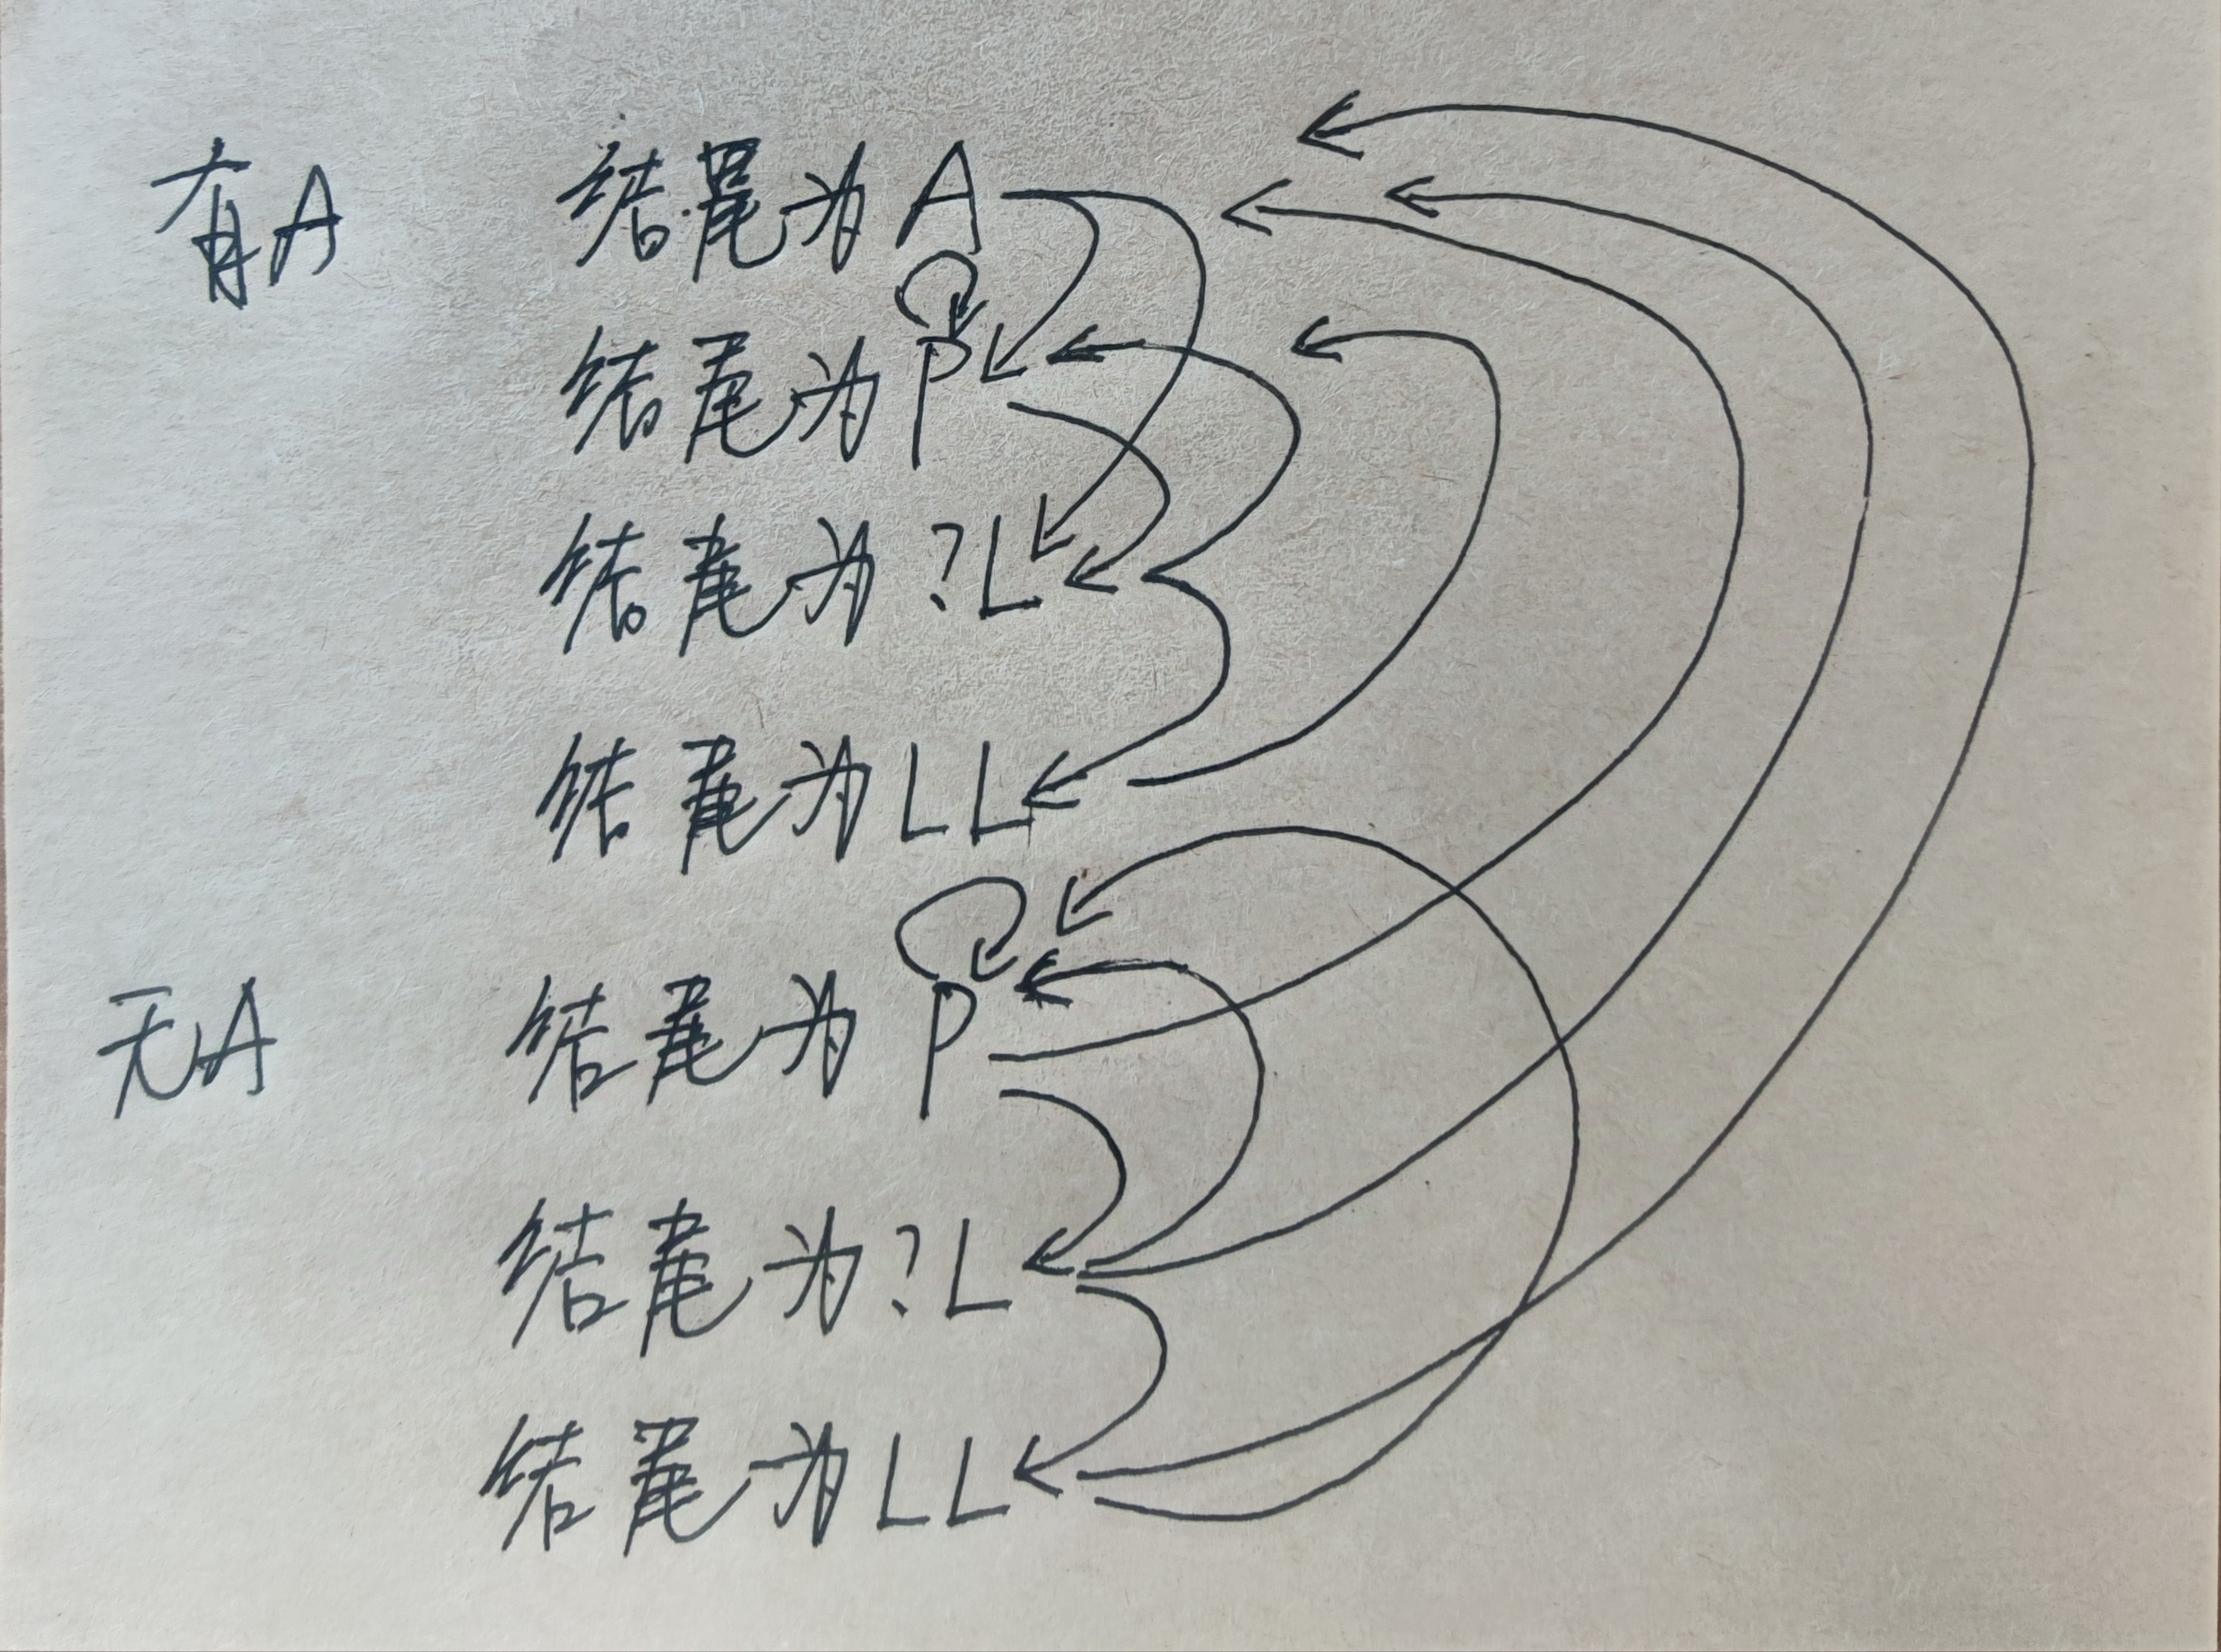 有A 结尾为A
结尾为P
结尾为?L
结尾为LL
无A 结尾为P
结尾为?L
结尾为LL